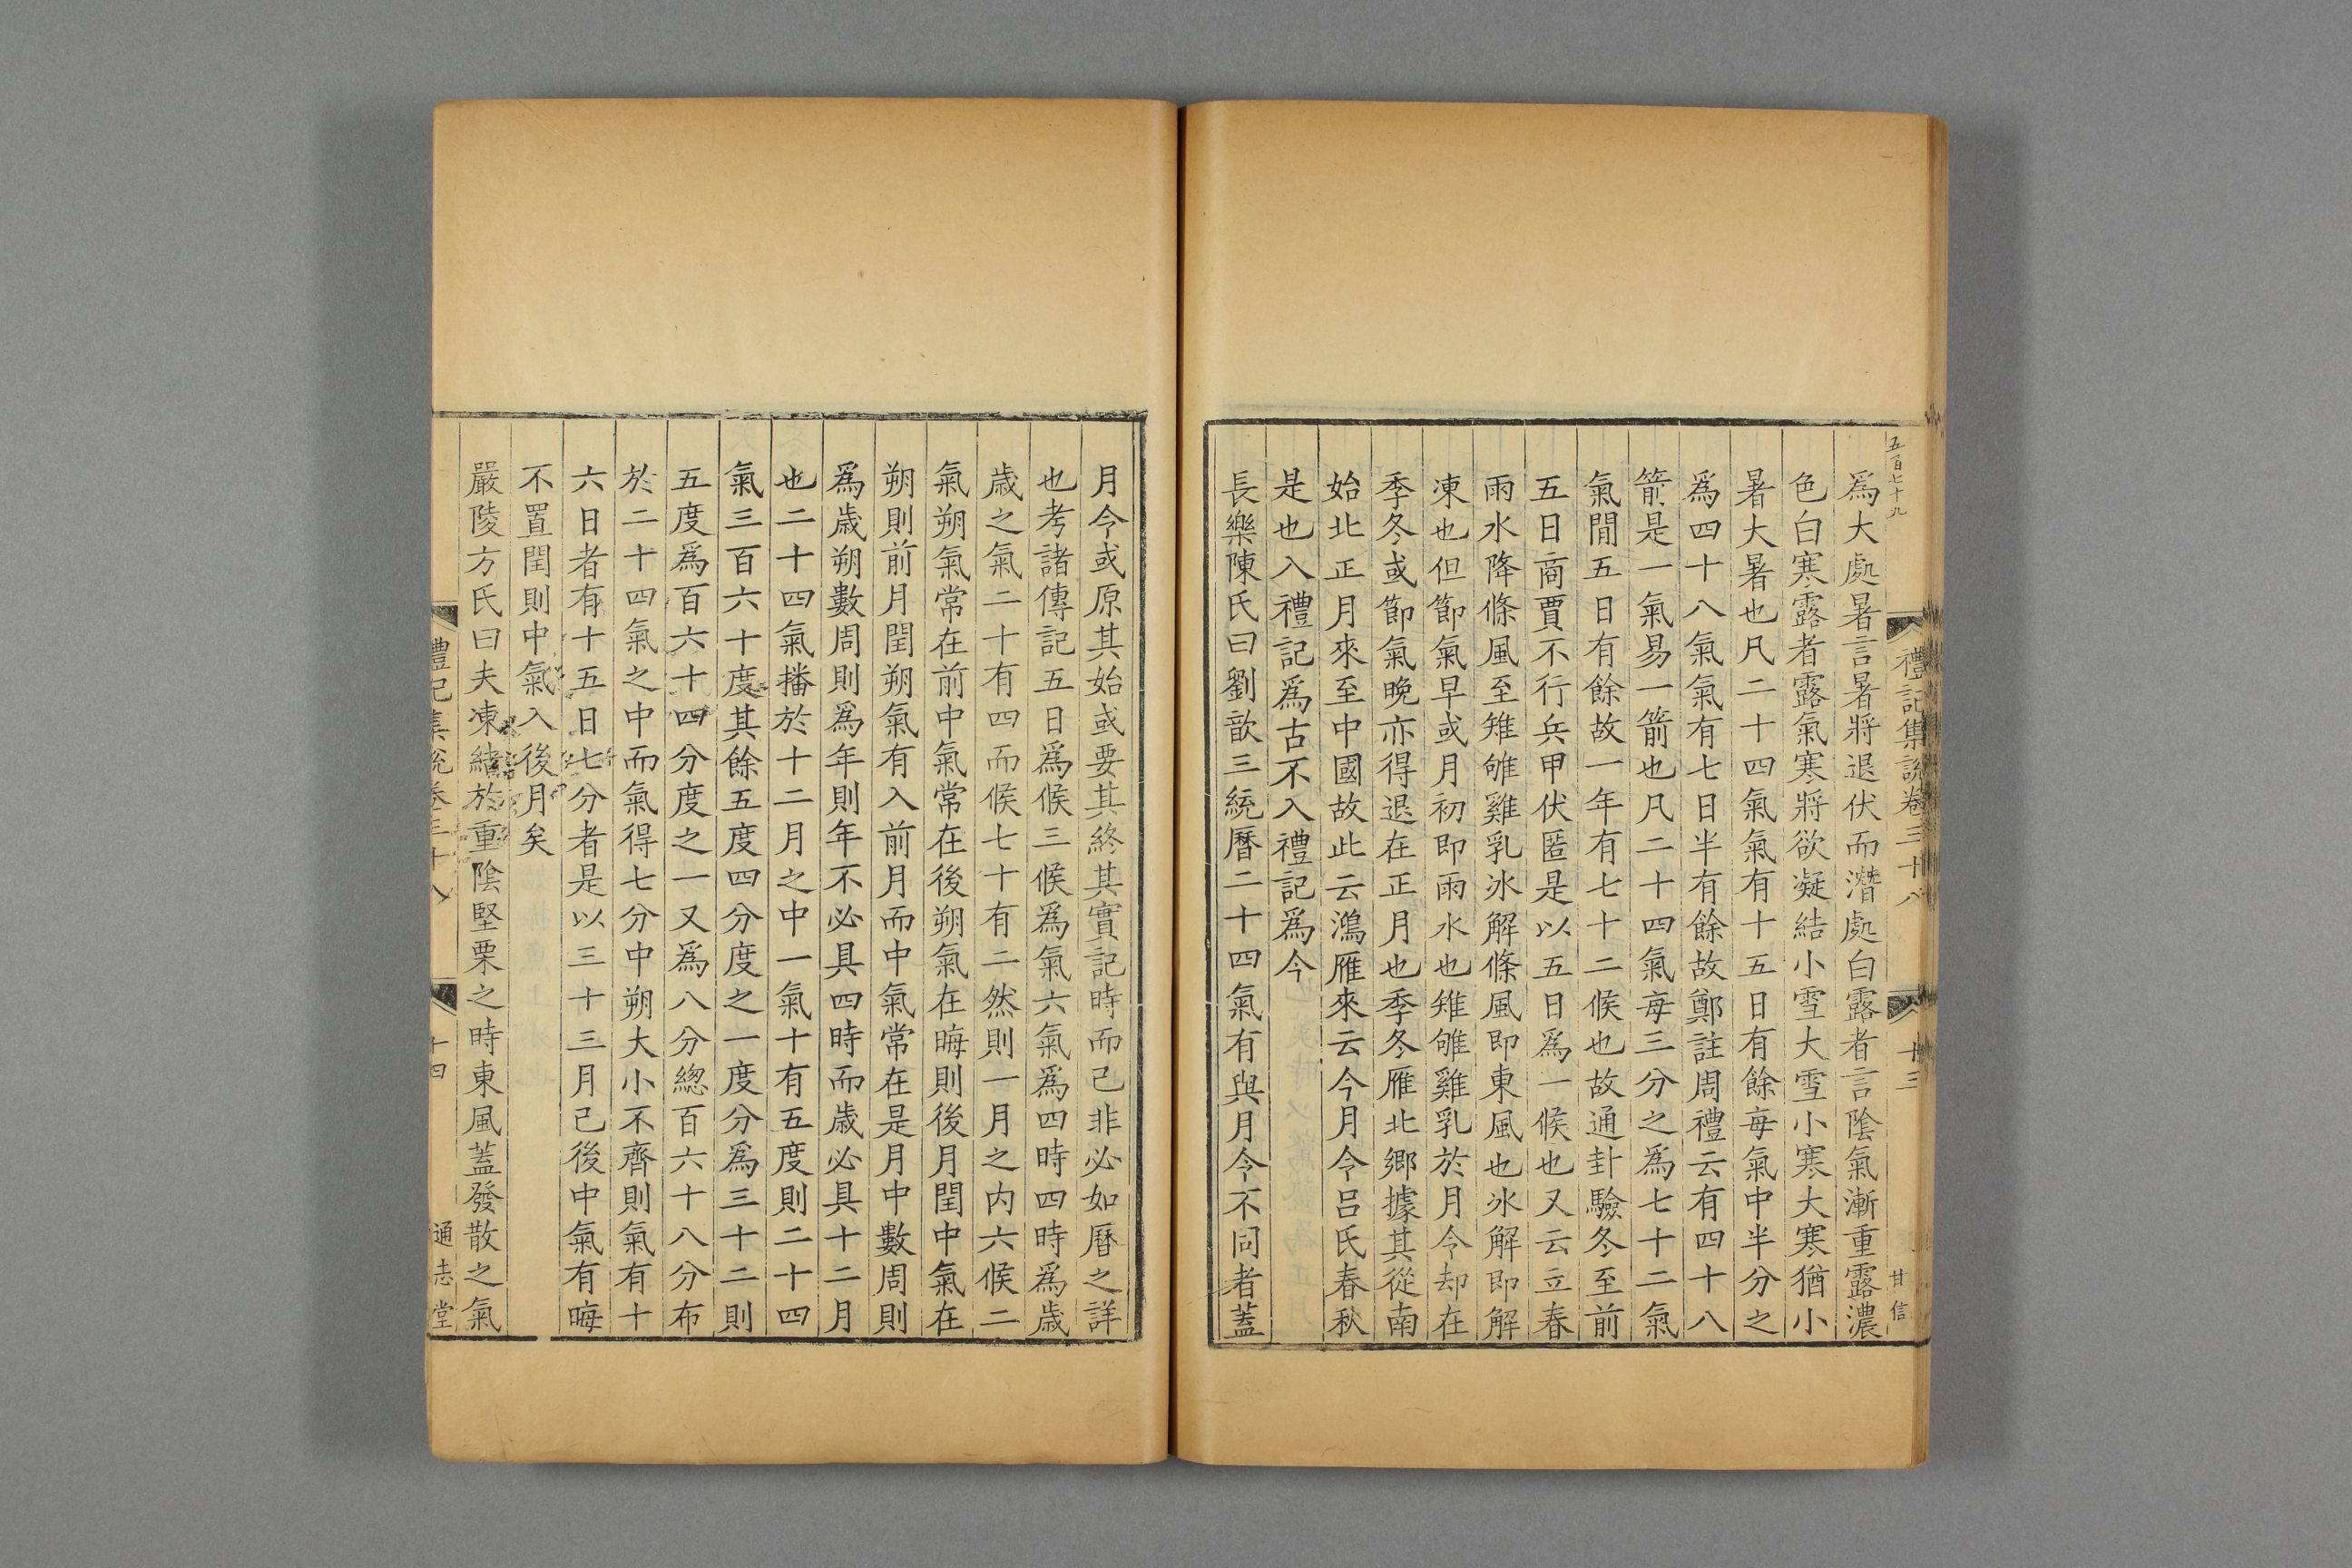 五百七十九
禮記集說卷三十八
十三
甘信
爲大處暑言暑將退伏而潛處白露者言陰氣漸重露濃
色白寒露者露氣寒將欲凝結小雪大雪小寒大寒猶小
暑大暑也凡二十四氣氣有十五日有餘每氣中半分之
爲四十八氣氣有七日半有餘故鄭註周禮云有四十八
箭是一氣易一箭也凡二十四氣每三分之爲七十二氣
氣閒五日有餘故一年有七十二候也故通卦驗冬至前
五日商賈不行兵甲伏匿是以五日爲一候也又云立春
雨水降條風至雉雊雞乳冰解條風即東風也冰解即解
凍也但節氣早或月初即雨水也雉雊雞乳於月令却在
季冬或節氣晚亦得退在正月也季冬雁北鄉據其從南
始北正月來至中國故此云鴻雁來云今月令呂氏春秋
是也入禮記爲古不入禮記爲今
長樂陳氏曰劉歆三統曆二十四氣有與月令不同者蓋
月令或原其始或要其終其實記時而已非必如曆之詳
也考諸傳記五日爲候三候爲氣六氣爲四時四時爲歲
歲之氣二十有四而候七十有二然則一月之內六候二
氣朔氣常在前中氣常在後朔氣在晦則後月閏中氣在
朔則前月閏朔氣有入前月而中氣常在是月中數周則
爲歲朔數周則爲年則年不必具四時而歲必具十二月
也二十四氣播於十二月之中一氣十有五度則二十四
氣三百六十度其餘五度四分度之一度分爲三十二則
五度爲百六十四分度之一又爲八分總百六十八分布
於二十四氣之中而氣得七分中朔大小不齊則氣有十
六日者有十五日七分者是以三十三月已後中氣有晦
不置閏則中氣入後月矣
嚴陵方氏曰夫凍結於重陰堅栗之時東風蓋發散之氣
禮記集說卷三十八
十四
通志堂